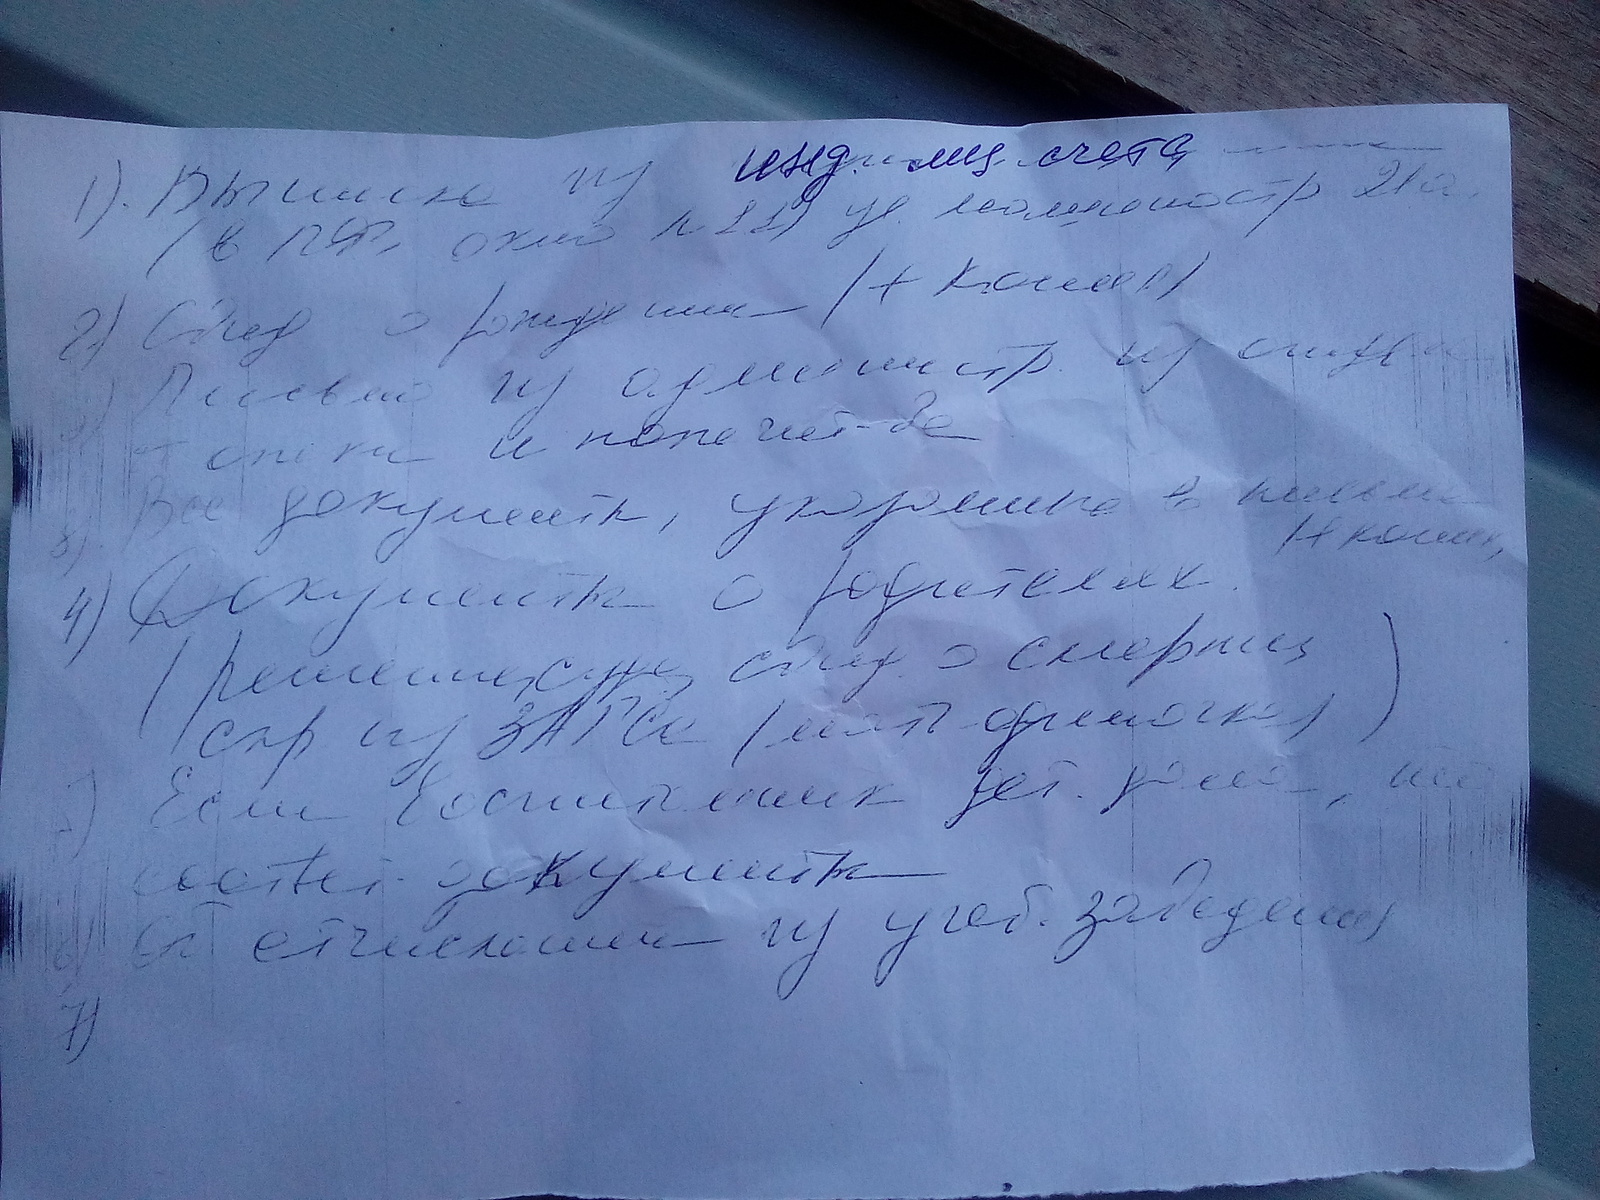 1). Выписка из инд. лиц. счета
(в ПФ, окно № 22) ул. 21а.
2) Свид о рождении (+ копия)
3) Письмо из администр. из
опеки и попечит-ва
3). Все документы, указанные в письме
(+ копии,
4) Документы о родителях.
(решение суда, свид. о смерти,
спр из ЗАГСа (мать одиночка)
5) Если воспитанник дет. дома, то
соотвт. документы
6) Об отчислении из учеб. заведения
7)